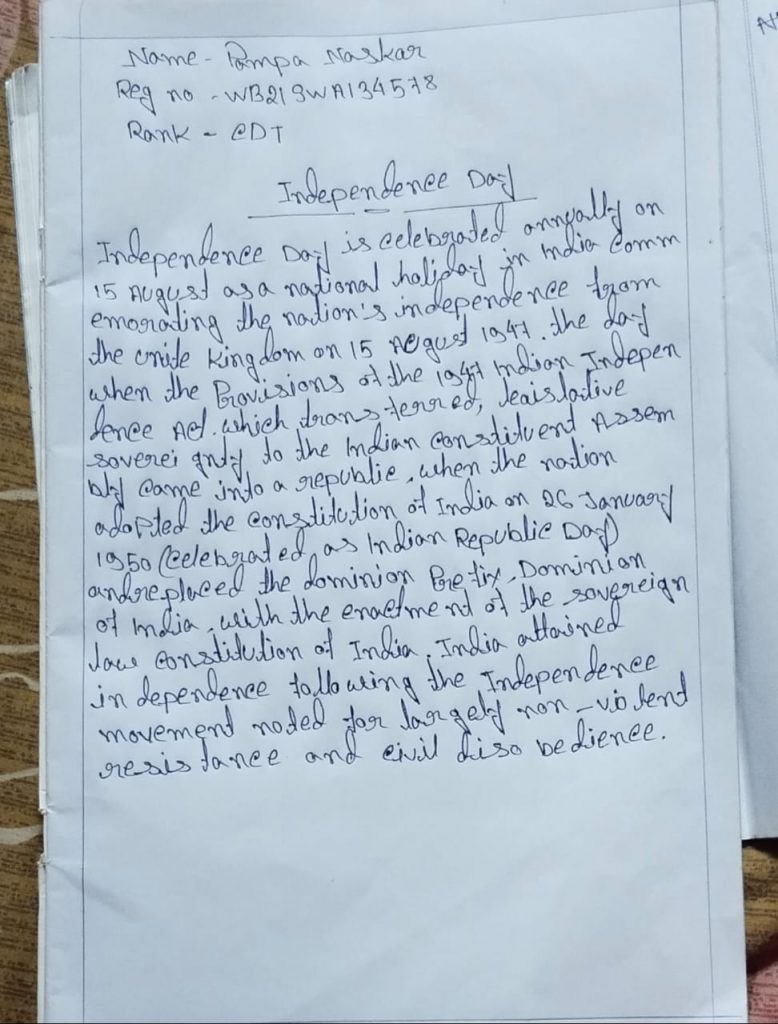 Name - Pampa Naskar
Reg no - WB21SWA134578
Rank - CDT
Independence Day
Independence Day is celebrated annually on
15 August as a national holiday in India Comm
emorating the nation's independence from
the unite kingdom on 15 August 1947. the day
when the Provisions of the 1947 Indian Indepen
dence Act. which transferred, leaislative
soverei gnty to the Indian constituent Assem
bly came into a republic, when the nation
adopted the constitution of India on 26 January
1950 (celebrated as Indian Republic Day)
and replaced the dominion Prefix, Dominian
of India, with the enactment of the sovereign
law constitution of India. India attained
in dependence following the Independence
movement noted for largely non-violent
resistance and civil disobedience.